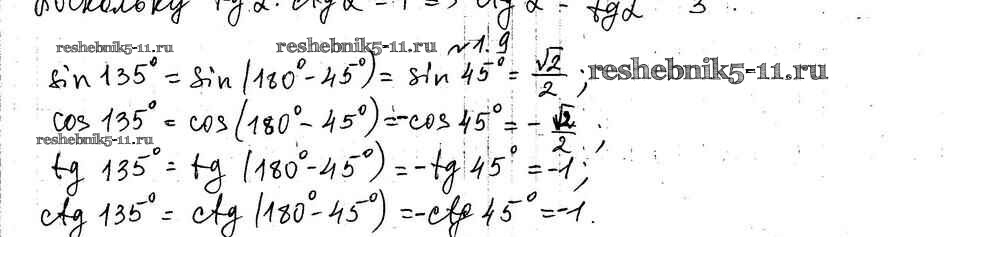 tg α · ctg α = 1 => ctg α = tg α 3
reshebnik5-11.ru reshebnik5-11.ru №1.9
sin 135° = sin (180° - 45°) = sin 45° = √2/2 ; reshebnik5-11.ru
cos 135° = cos (180° - 45°) = -cos 45° = - √2/2 ;
reshebnik5-11.ru
tg 135° = tg (180° - 45°) = -tg 45° = -1;
ctg 135° = ctg (180° - 45°) = -ctg 45° = -1.